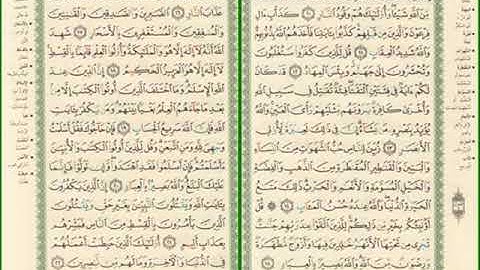 مِنَ اللَّهِ شَيْئًا وَأُولَٰئِكَ هُمْ وَقُودُ النَّارِ ١٠ كَدَأْبِ ءَالِ
فِرْعَوْنَ وَالَّذِينَ مِن قَبْلِهِمْ كَذَّبُوا بِآيَاتِنَا فَأَخَذَهُمُ اللَّهُ بِذُنُوبِهِمْ
وَاللَّهُ شَدِيدُ الْعِقَابِ ١١ قُل لِّلَّذِينَ كَفَرُوا سَتُغْلَبُونَ
وَتُحْشَرُونَ إِلَىٰ جَهَنَّمَ وَبِئْسَ الْمِهَادُ ١٢ قَدْ كَانَ
لَكُمْ ءَايَةٌ فِي فِئَتَيْنِ الْتَقَتَا فِئَةٌ تُقَاتِلُ فِي سَبِيلِ اللَّهِ
وَأُخْرَىٰ كَافِرَةٌ يَرَوْنَهُم مِّثْلَيْهِمْ رَأْيَ الْعَيْنِ وَاللَّهُ
يُؤَيِّدُ بِنَصْرِهِ مَن يَشَاءُ إِنَّ فِي ذَٰلِكَ لَعِبْرَةً لِّأُولِي الْأَبْصَارِ
١٣ زُيِّنَ لِلنَّاسِ حُبُّ الشَّهَوَاتِ مِنَ النِّسَاءِ
وَالْبَنِينَ وَالْقَنَاطِيرِ الْمُقَنطَرَةِ مِنَ الذَّهَبِ وَالْفِضَّةِ
وَالْخَيْلِ الْمُسَوَّمَةِ وَالْأَنْعَامِ وَالْحَرْثِ ذَٰلِكَ مَتَاعُ
الْحَيَاةِ الدُّنْيَا وَاللَّهُ عِندَهُ حُسْنُ الْمَآبِ ١٤ قُلْ
أَؤُنَبِّئُكُم بِخَيْرٍ مِّن ذَٰلِكُمْ لِلَّذِينَ اتَّقَوْا عِندَ رَبِّهِمْ جَنَّاتٌ
تَجْرِي مِن تَحْتِهَا الْأَنْهَارُ خَالِدِينَ فِيهَا وَأَزْوَاجٌ مُّطَهَّرَةٌ
وَرِضْوَانٌ مِّنَ اللَّهِ وَاللَّهُ بَصِيرٌ بِالْعِبَادِ ١٥
عَذَابَ النَّارِ ١٦ الصَّابِرِينَ وَالصَّادِقِينَ وَالْقَانِتِينَ
وَالْمُنفِقِينَ وَالْمُسْتَغْفِرِينَ بِالْأَسْحَارِ ١٧ شَهِدَ
اللَّهُ أَنَّهُ لَا إِلَٰهَ إِلَّا هُوَ وَالْمَلَائِكَةُ وَأُولُو الْعِلْمِ قَائِمًا بِالْقِسْطِ
لَا إِلَٰهَ إِلَّا هُوَ الْعَزِيزُ الْحَكِيمُ ١٨ إِنَّ الدِّينَ عِندَ
اللَّهِ الْإِسْلَامُ وَمَا اخْتَلَفَ الَّذِينَ أُوتُوا الْكِتَابَ إِلَّا مِن
بَعْدِ مَا جَاءَهُمُ الْعِلْمُ بَغْيًا بَيْنَهُمْ وَمَن يَكْفُرْ بِآيَاتِ
اللَّهِ فَإِنَّ اللَّهَ سَرِيعُ الْحِسَابِ ١٩ فَإِنْ حَاجُّوكَ فَقُلْ أَسْلَمْتُ
وَجْهِيَ لِلَّهِ وَمَنِ اتَّبَعَنِ وَقُل لِّلَّذِينَ أُوتُوا الْكِتَابَ وَالْأُمِّيِّينَ
ءَأَسْلَمْتُمْ فَإِنْ أَسْلَمُوا فَقَدِ اهْتَدَوا وَّإِن تَوَلَّوْا فَإِنَّمَا
عَلَيْكَ الْبَلَاغُ وَاللَّهُ بَصِيرٌ بِالْعِبَادِ ٢٠ إِنَّ الَّذِينَ يَكْفُرُونَ
بِآيَاتِ اللَّهِ وَيَقْتُلُونَ النَّبِيِّينَ بِغَيْرِ حَقٍّ وَيَقْتُلُونَ
الَّذِينَ يَأْمُرُونَ بِالْقِسْطِ مِنَ النَّاسِ فَبَشِّرْهُم
بِعَذَابٍ أَلِيمٍ ٢١ أُولَٰئِكَ الَّذِينَ حَبِطَتْ أَعْمَالُهُمْ
فِي الدُّنْيَا وَالْآخِرَةِ وَمَا لَهُم مِّن نَّاصِرِينَ ٢٢